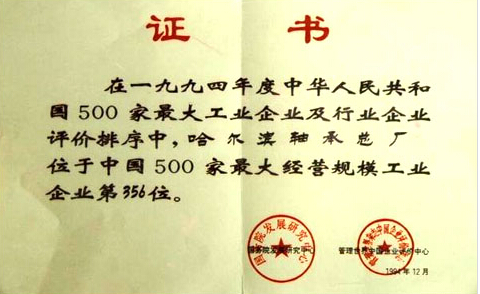 证 书
在一九九四年度中华人民共和
国500家最大工业企业及行业企业
评价排序中，哈尔滨轴承总厂
位于中国500家最大经营规模工业
企业第356位。
国务院发展研究中心
管理世界中国企业评价中心
国务院发展研究中心
1994年12月